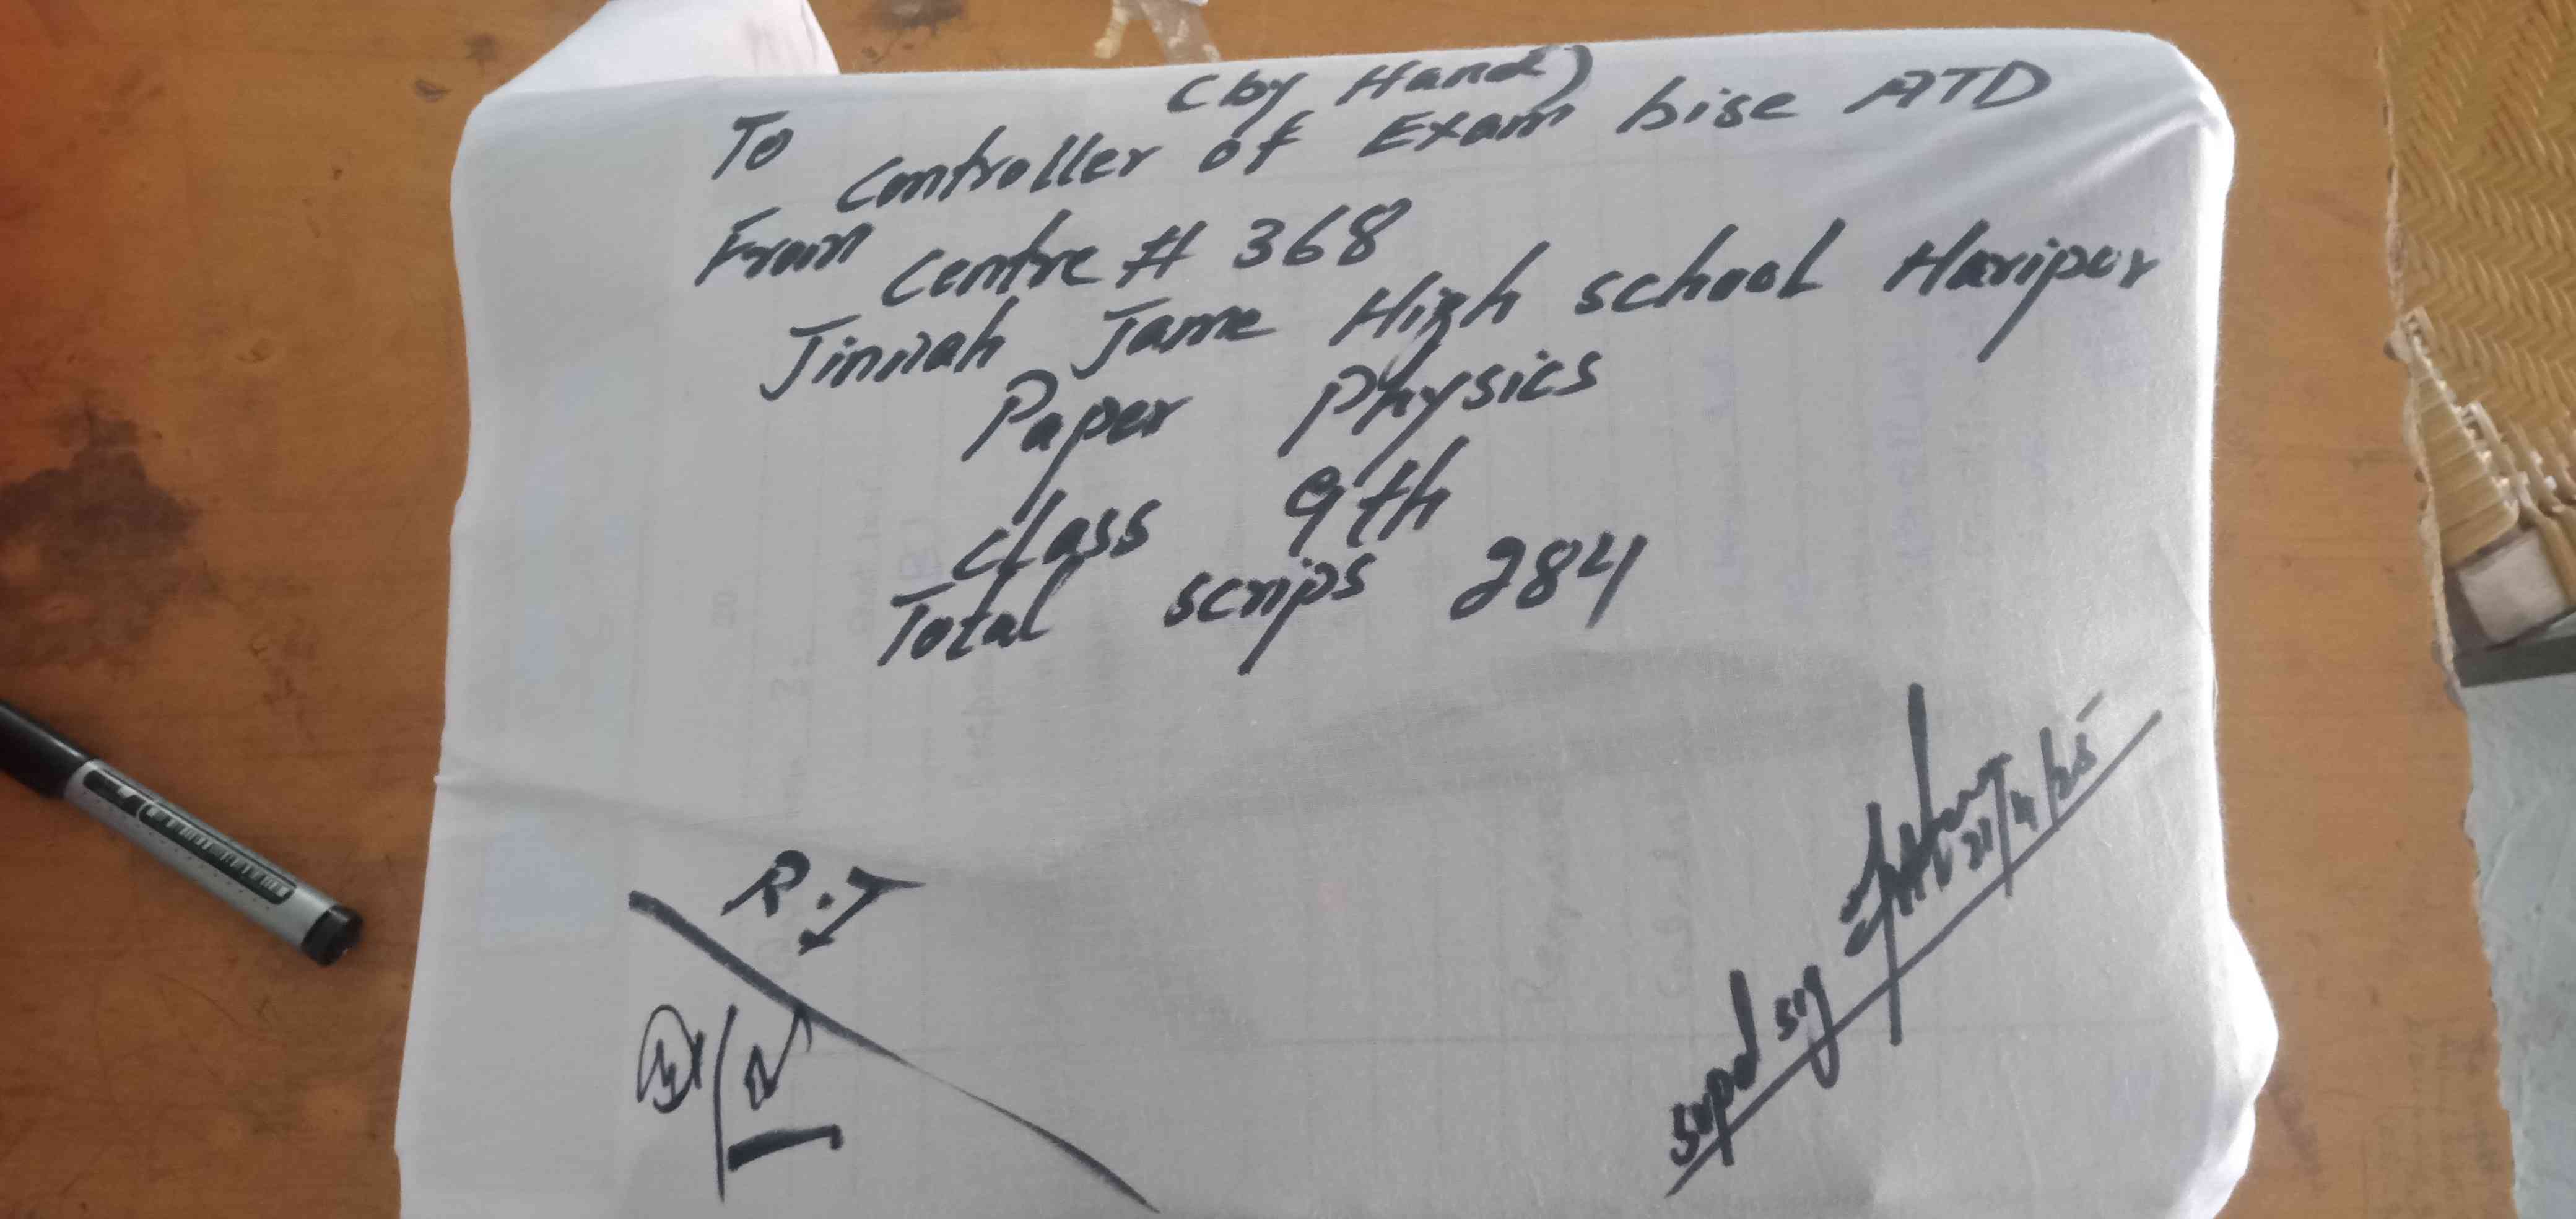 (by Hand)
To
Controller of Exam bise ATD
From
Centre # 368
Jinnah Jame High school Haripur
Paper Physics
class 9th
Total scrips 284
R.I
Supd sig
21/4/25